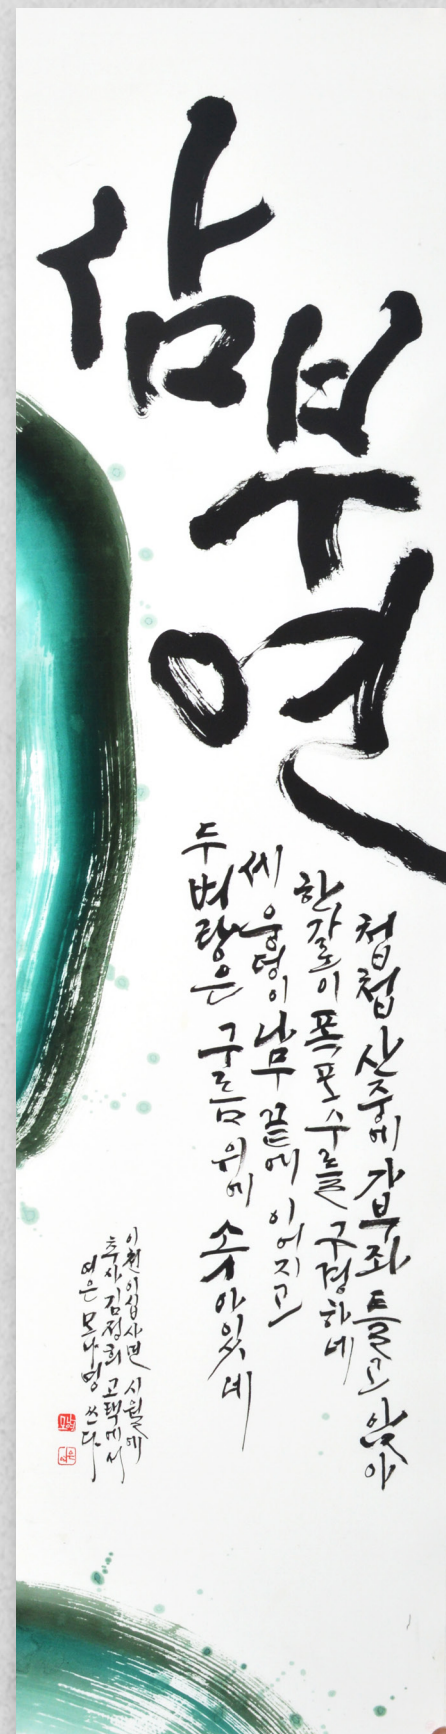 삼부연
첩첩 산중에 가부좌 틀고 앉아
한갈이 폭포수를 구경하네
세 웅덩이 나무 끝에 이어지고
두 벼랑은 구름 위에 솟아있네
이천이십사년 시월에
추사 김정희 고택에서
여은 모나병 쓰다